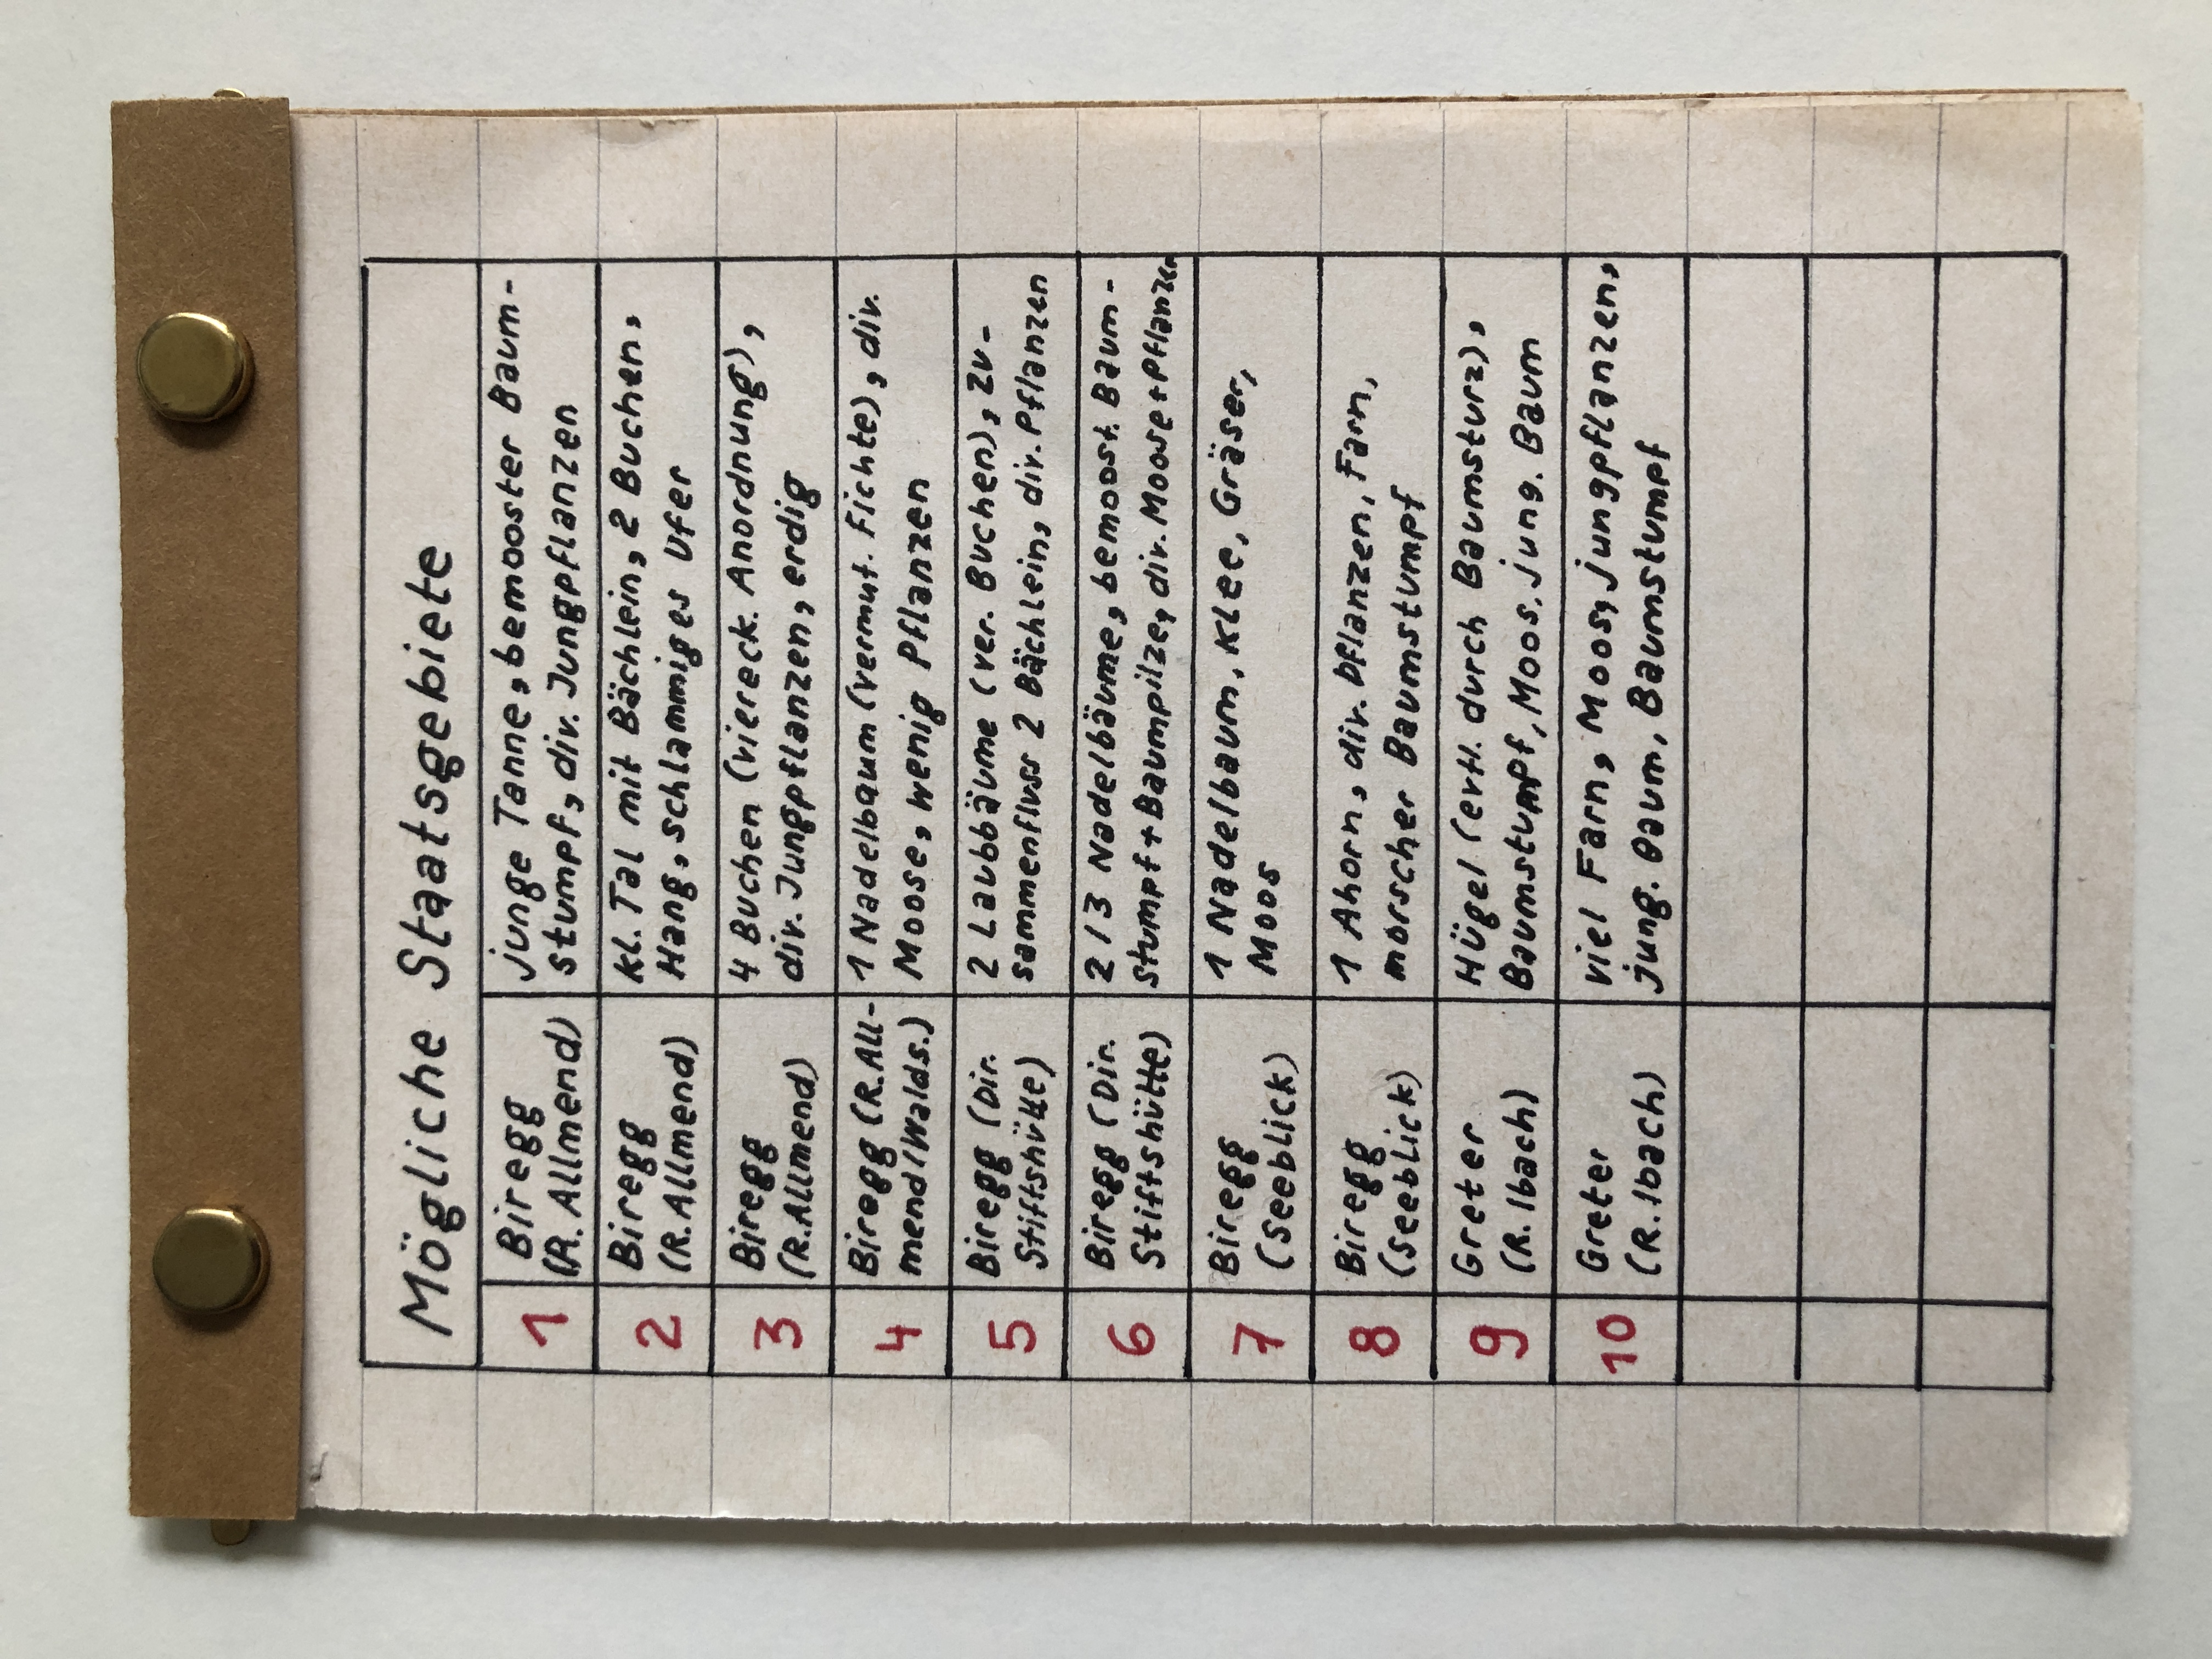 Mögliche Staatsgebiete
1
Biregg
(R. Allmend)
junge Tanne, bemooster Baum-
stumpf, div. Jungpflanzen
2
Biregg
(R. Allmend)
kl. Tal mit Bächlein, 2 Buchen,
Hang, schlammiges Ufer
3
Biregg
(R. Allmend)
4 Buchen (viereck. Anordnung),
div. Jungpflanzen, erdig
4
Biregg (R. All-
mend/Walds.)
1 Nadelbaum (vermut. Fichte), div.
Moose, wenig Pflanzen
5
Biregg (Dir.
Stiftshütte)
2 Laubbäume (ver. Buchen), zu-
sammenfluss 2 Bächlein, div. Pflanzen
6
Biregg (Dir.
Stiftshütte)
2/3 Nadelbäume, bemoost. Baum-
stumpf + Baumpilze, div. Moose + Pflanzen
7
Biregg
(Seeblick)
1 Nadelbaum, Klee, Gräser,
Moos
8
Biregg
(Seeblick)
1 Ahorn, div. Pflanzen, Farn,
morscher Baumstumpf
9
Greter
(R. Ibach)
Hügel (evtl. durch Baumsturz),
Baumstumpf, Moos, jung. Baum
10
Greter
(R. Ibach)
viel Farn, Moos, jungpflanzen,
jung. Baum, Baumstumpf